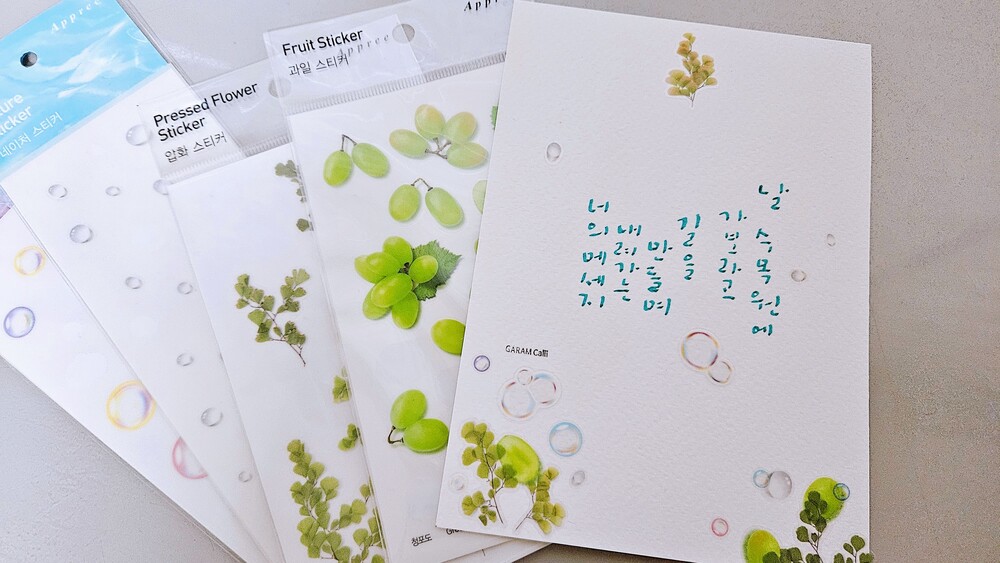 Appree
Nature
Sticker
네이처 스티커
Pressed Flower
Sticker
압화 스티커
Appree
Fruit Sticker
과일 스티커
Appree
청포도
날
길을
만들며
내려가는
너의메세지
GARAM Calli